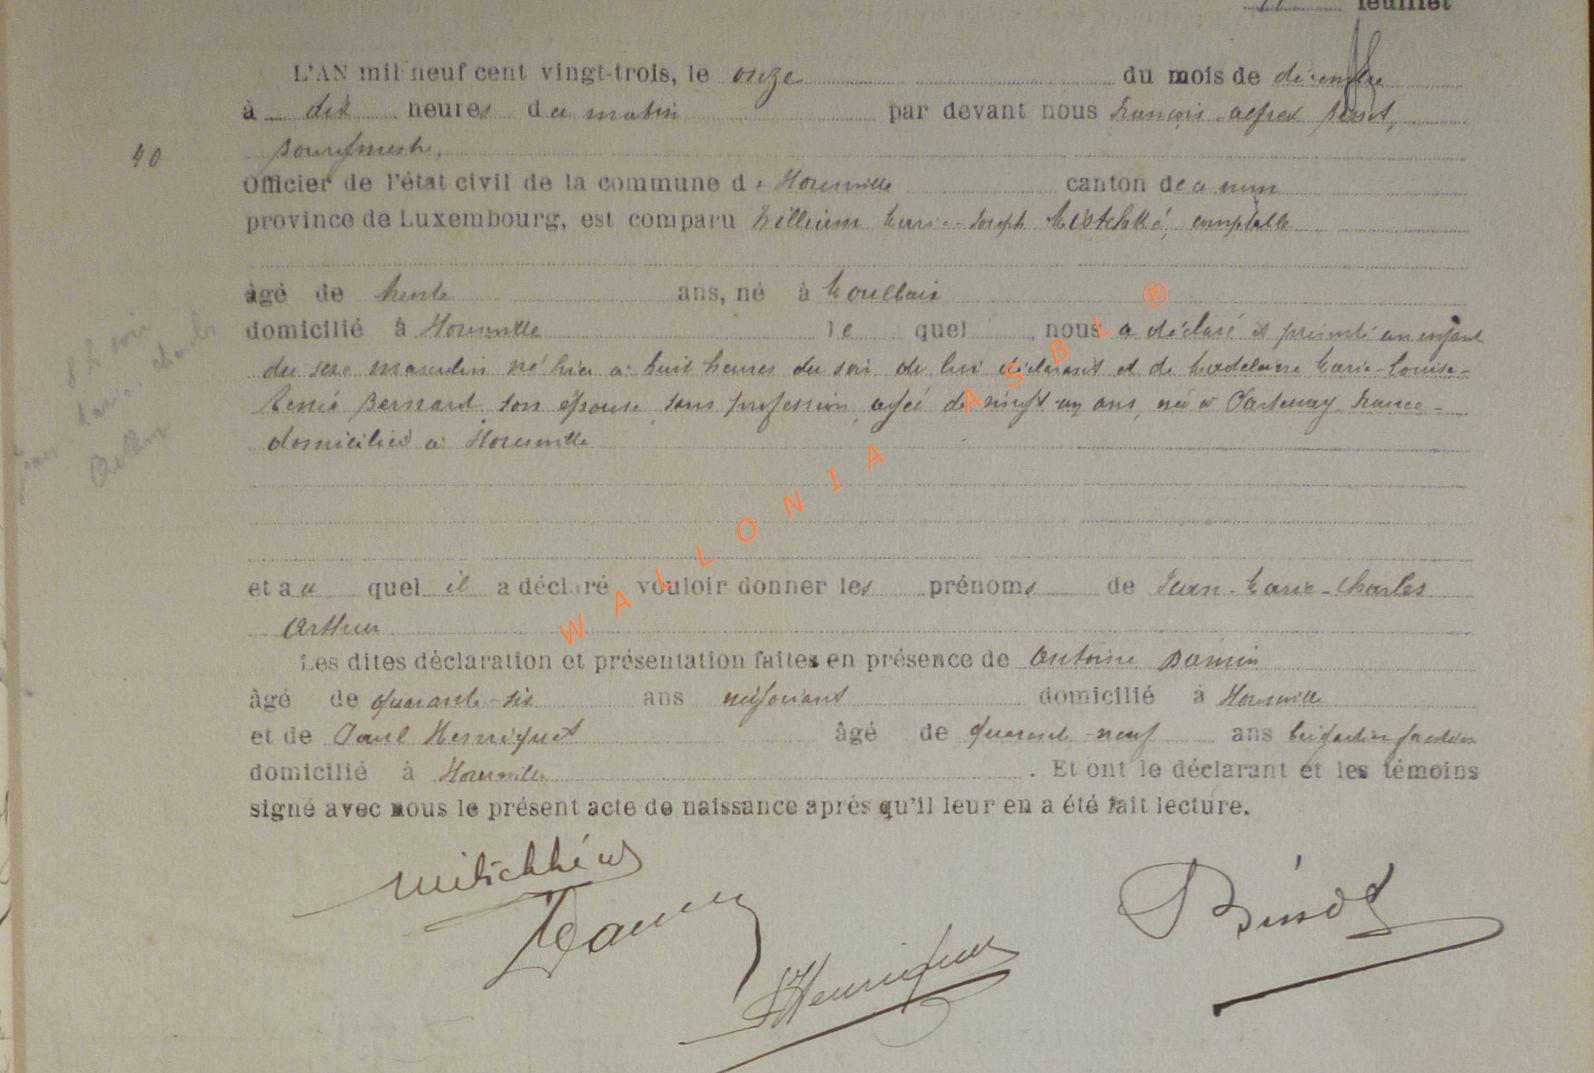 feuillet
L'AN mil neuf cent vingt-trois, le onze du mois de décembre
à dix heures du matin par devant nous François-Alfred
40
Bourgmestre,
Officier de l'état civil de la commune de canton de
province de Luxembourg, est comparu William Marie-Joseph comptable
âgé de trente ans, né à Moulbaix
domicilié à le quel nous a déclaré et présenté un enfant
du sexe masculin né hier à huit heures du soir de lui déclarant et de Madeleine Marie-Louise-
Renée Bernard son épouse, sans profession, âgée de vingt un ans, née à Partenay France-
domiciliée à
8 h soir
Marie Charles
Jean
Arthur
et au quel il a déclaré vouloir donner les prénoms de Jean-Marie-Charles
Arthur
Les dites déclaration et présentation faites en présence de Antoine Damin
âgé de quarante-six ans négociant domicilié à
et de Paul Henriquet âgé de quarante-neuf ans brigadier forestier
domicilié à . Et ont le déclarant et les témoins
signé avec nous le présent acte de naissance après qu'il leur en a été fait lecture.
WALLONIA ASBL ®
Henriquet